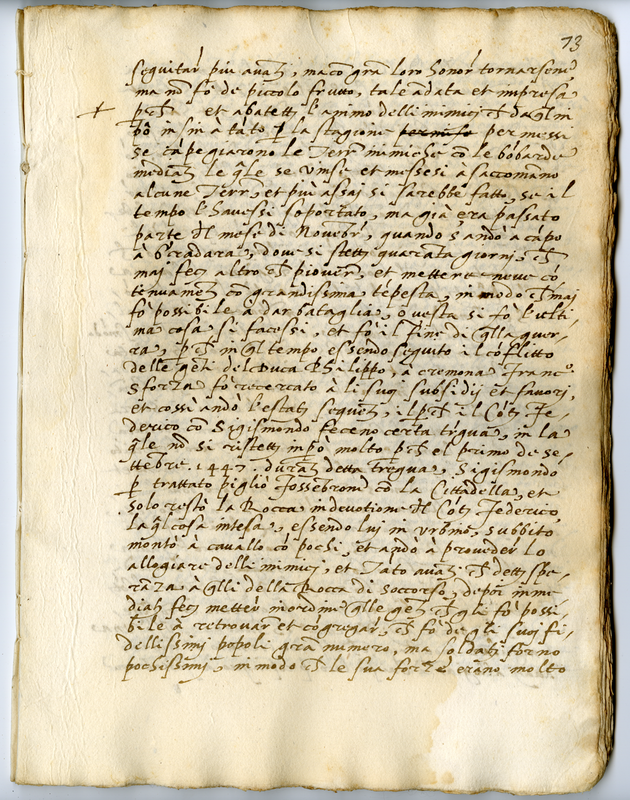 73
seguitar più avati, ma cō grā loro honor tornarsene
ma nō fò de piccolo frutto, tale adata et impresa
+ et abatetti l'animo delli nimici
in sin a tato la stagione permesse
se cāpegiarono le Terr nimiche cō le bōbarde
mediati le q̃le se vinse et messesi a saccomano
alcune Terr, et più assaj si sarebbe fatto, se il
tempo l'havessi soportato, ma già era passato
parte il mese di Novebr, quando s'andò a cāpo
à Gradara, dove si stetti quarata giornj,
maj fecj altro piover, et metter neve cō
tinuamēt cō grandissima tēpesta, in modo maj
fò possibile à dar bataglia, questa si fò l'ulti,
ma cosa si facessi, et fò il fine di q̃lla guer,
ra, in q̃l tempo essendo seguito il cōflitto
delle gēti del Duca Philippo, à cremona Franc.º
Sforza fò recercato à li suoj subsidij et favorj,
et cossì andò l'estati sequēti, il il Cōti Fe,
derico cō Sigismondo feceno certa tregua, in la
q̃le nō si ristetti molto el primo de se,
ttembre. 1447. durāti detta tregua, Sigismondo
trattato pigliò Fossebrone cō la Cittadella, et
solo restò la Rocca in devotione il Cōti Federico,
la q̃l cosa intesa, essendo luj in Urbino, subbito
montò à cavallo cō pochi, et andò a proveder lo
allogiare delli nimicj, et Tato avati dettj spe,
rāza, à q̃lli della Rocca di soccorso, depoi imme
diati fecj metter inordine q̃lle gēti gli fò possi
bile à retrovar et cōgregar, fò de q̃li suoj fi,
dellissimj popoli grā numero, ma soldati forno
pochissimj, in modo le sua forze erano molto